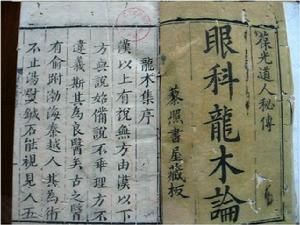 葆光道人秘傳
眼科龍木論
藜照書屋藏板
龍木集序
漢以上有說無方由漢以下有
方無說始備說不乖理方不
違義斯其為良醫矣古之醫
有俞跗渤海秦越人其為術
不止湯熨鍼石能視見人五